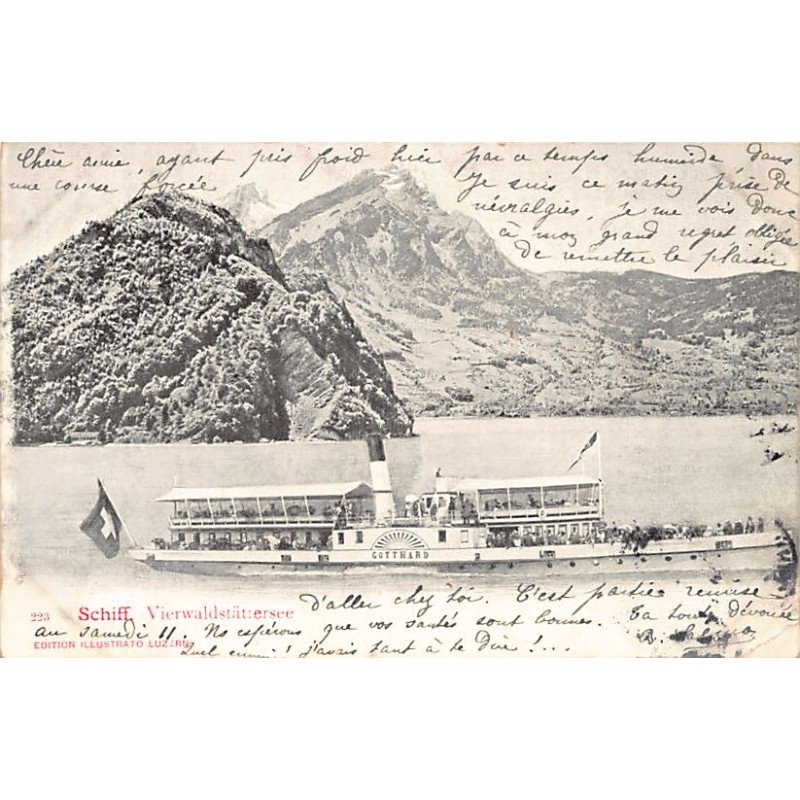 Chère amie, ayant pris froid hier par ce temps humide dans
une course forcée
Je suis ce matin prise de
névralgies, je me vois donc
à mon grand regret obligée
de remettre le plaisir
GOTTHARD
223 Schiff. Vierwaldstättersee
EDITION ILLUSTRATO LUZERN
d'aller chez toi. C'est partie remise
au samedi 11. Ns espérons que vos santés sont bonnes. Ta toute dévouée
Quel ennui ! j'avais tant à te dire !...